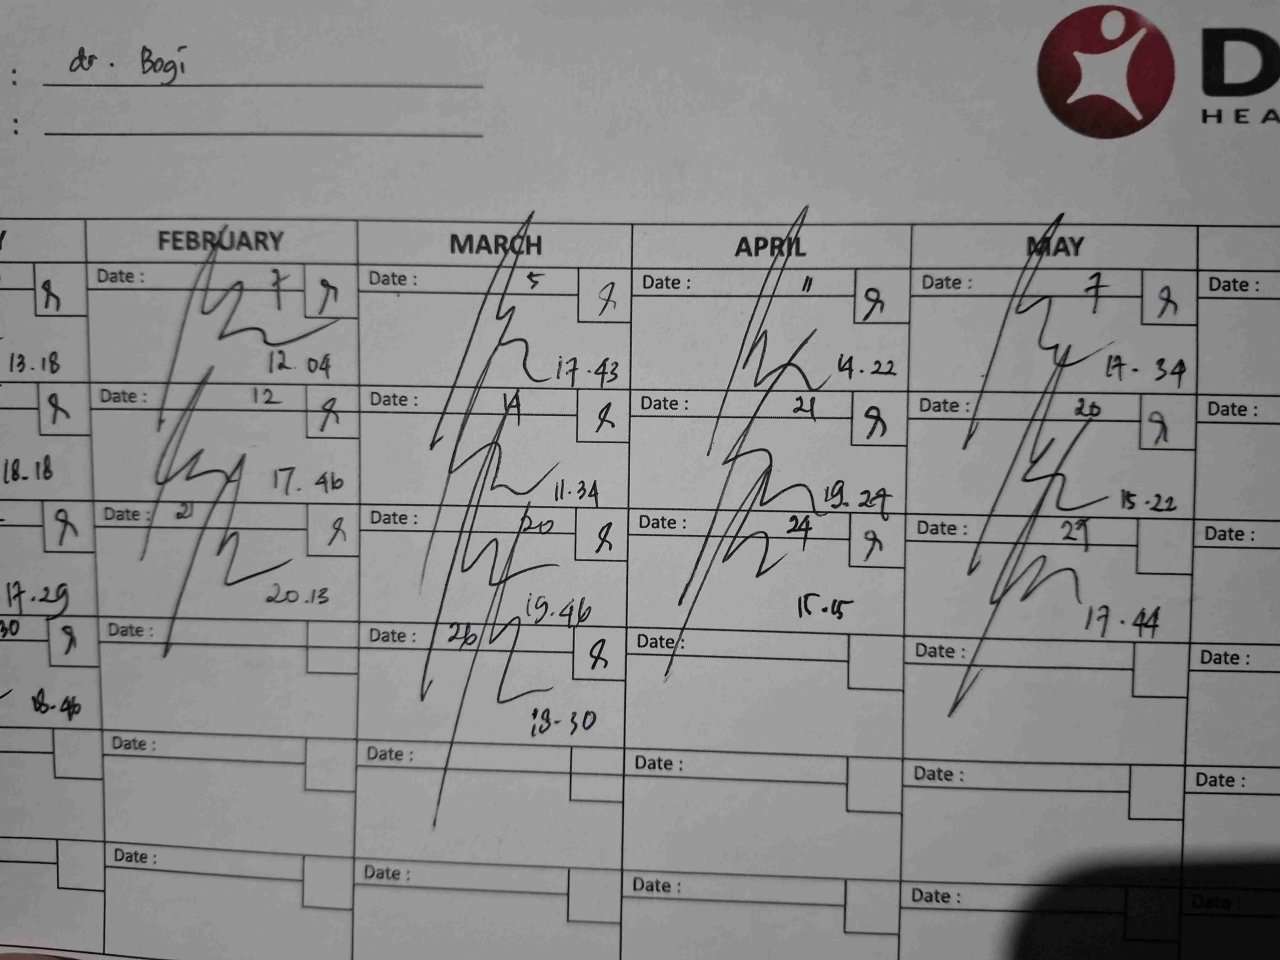 : dr. Bogi
:
D
HEA
Y FEBRUARY MARCH APRIL MAY
Date : 7 Date : 5 Date : 11 Date : 7 Date :
13.18 12.04 17.43 14.22 17.34
Date : 12 Date : 14 Date : 21 Date : 20 Date :
18.18 17.46 11.34 19.24 15.22
Date : 21 Date : 20 Date : 24 Date : 29 Date :
17.29 20.13 19.46 15.15 17.44
30 Date : Date : 26 Date : Date : Date :
18.46 18-30
Date : Date : Date : Date : Date :
Date : Date : Date : Date : Date